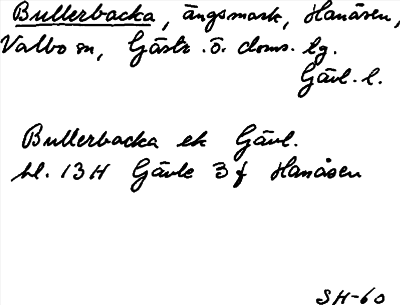 Bullerbacka, ängsmark, Hanåsen,
Valbo sn, Gästr. ö. doms. tg.
Gävl. l.
Bullerbacka ek Gävl.
bl. 13H Gävle 3 f Hanåsen
SH-60